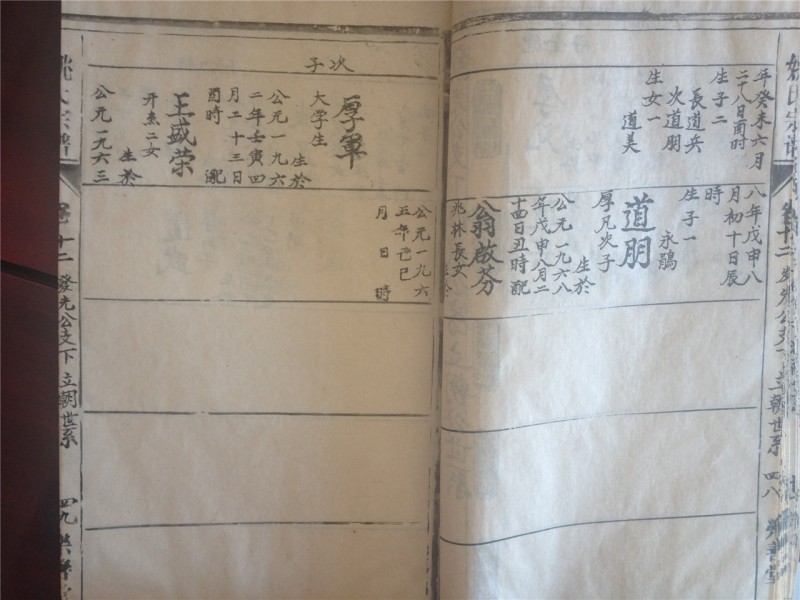 年癸未六月
二十八日酉時
生子二
長道兵
次道朋
生女一
道美
八年戊申八
月初十日辰
時
生子一
永鵠
道朋
厚凡次子
生於
公元一九六八
年戊申八月二
十四日丑時配
翁啟芬
兆林長女
生於
次子
厚軍
大学生
生於
公元一九六
二年壬寅四
月二十三日
酉時 配
王盛荣
开杰二女
生於
公元一九六三
公元一九六
五年乙巳
月 日 時
姚氏宗譜
卷十二
發先公支下
立朝世系
四八
姚氏宗譜
卷十二
發先公支下
立朝世系
四九